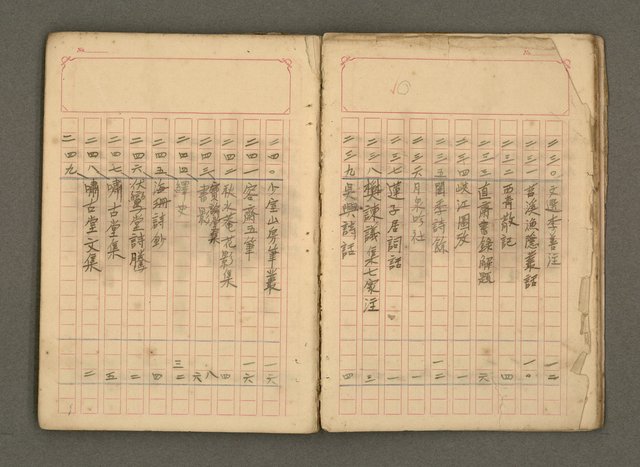 二三〇 文選李善注 一二
二三一 苕溪漁隱叢話 一〇
二三二 西青散記 四
二三三 直齋書錄解題 六
二三四 峽江圖 一
二三五 蘭季詩餘 一二
二三六 月泉吟社 一
二三七 蓮子居詞話 一
二三八 樊諫議集七家注 三
二三九 吳興詩話 四
二四〇 少室山房筆叢 一六
二四一 容齋五筆 一六
二四二 秋水菴花影集 四
二四三 書影 八 六
二四四 繹史 三二
二四五 海珊詩鈔 四
二四六 伏鸞堂詩賸 二
二四七 嘯古堂集 五
二四八 嘯古堂文集 二
二四九